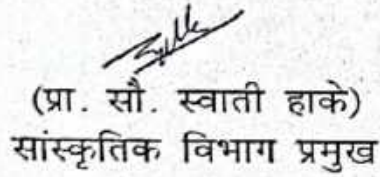 (प्रा. सौ. स्वाती हाके)
सांस्कृतिक विभाग प्रमुख